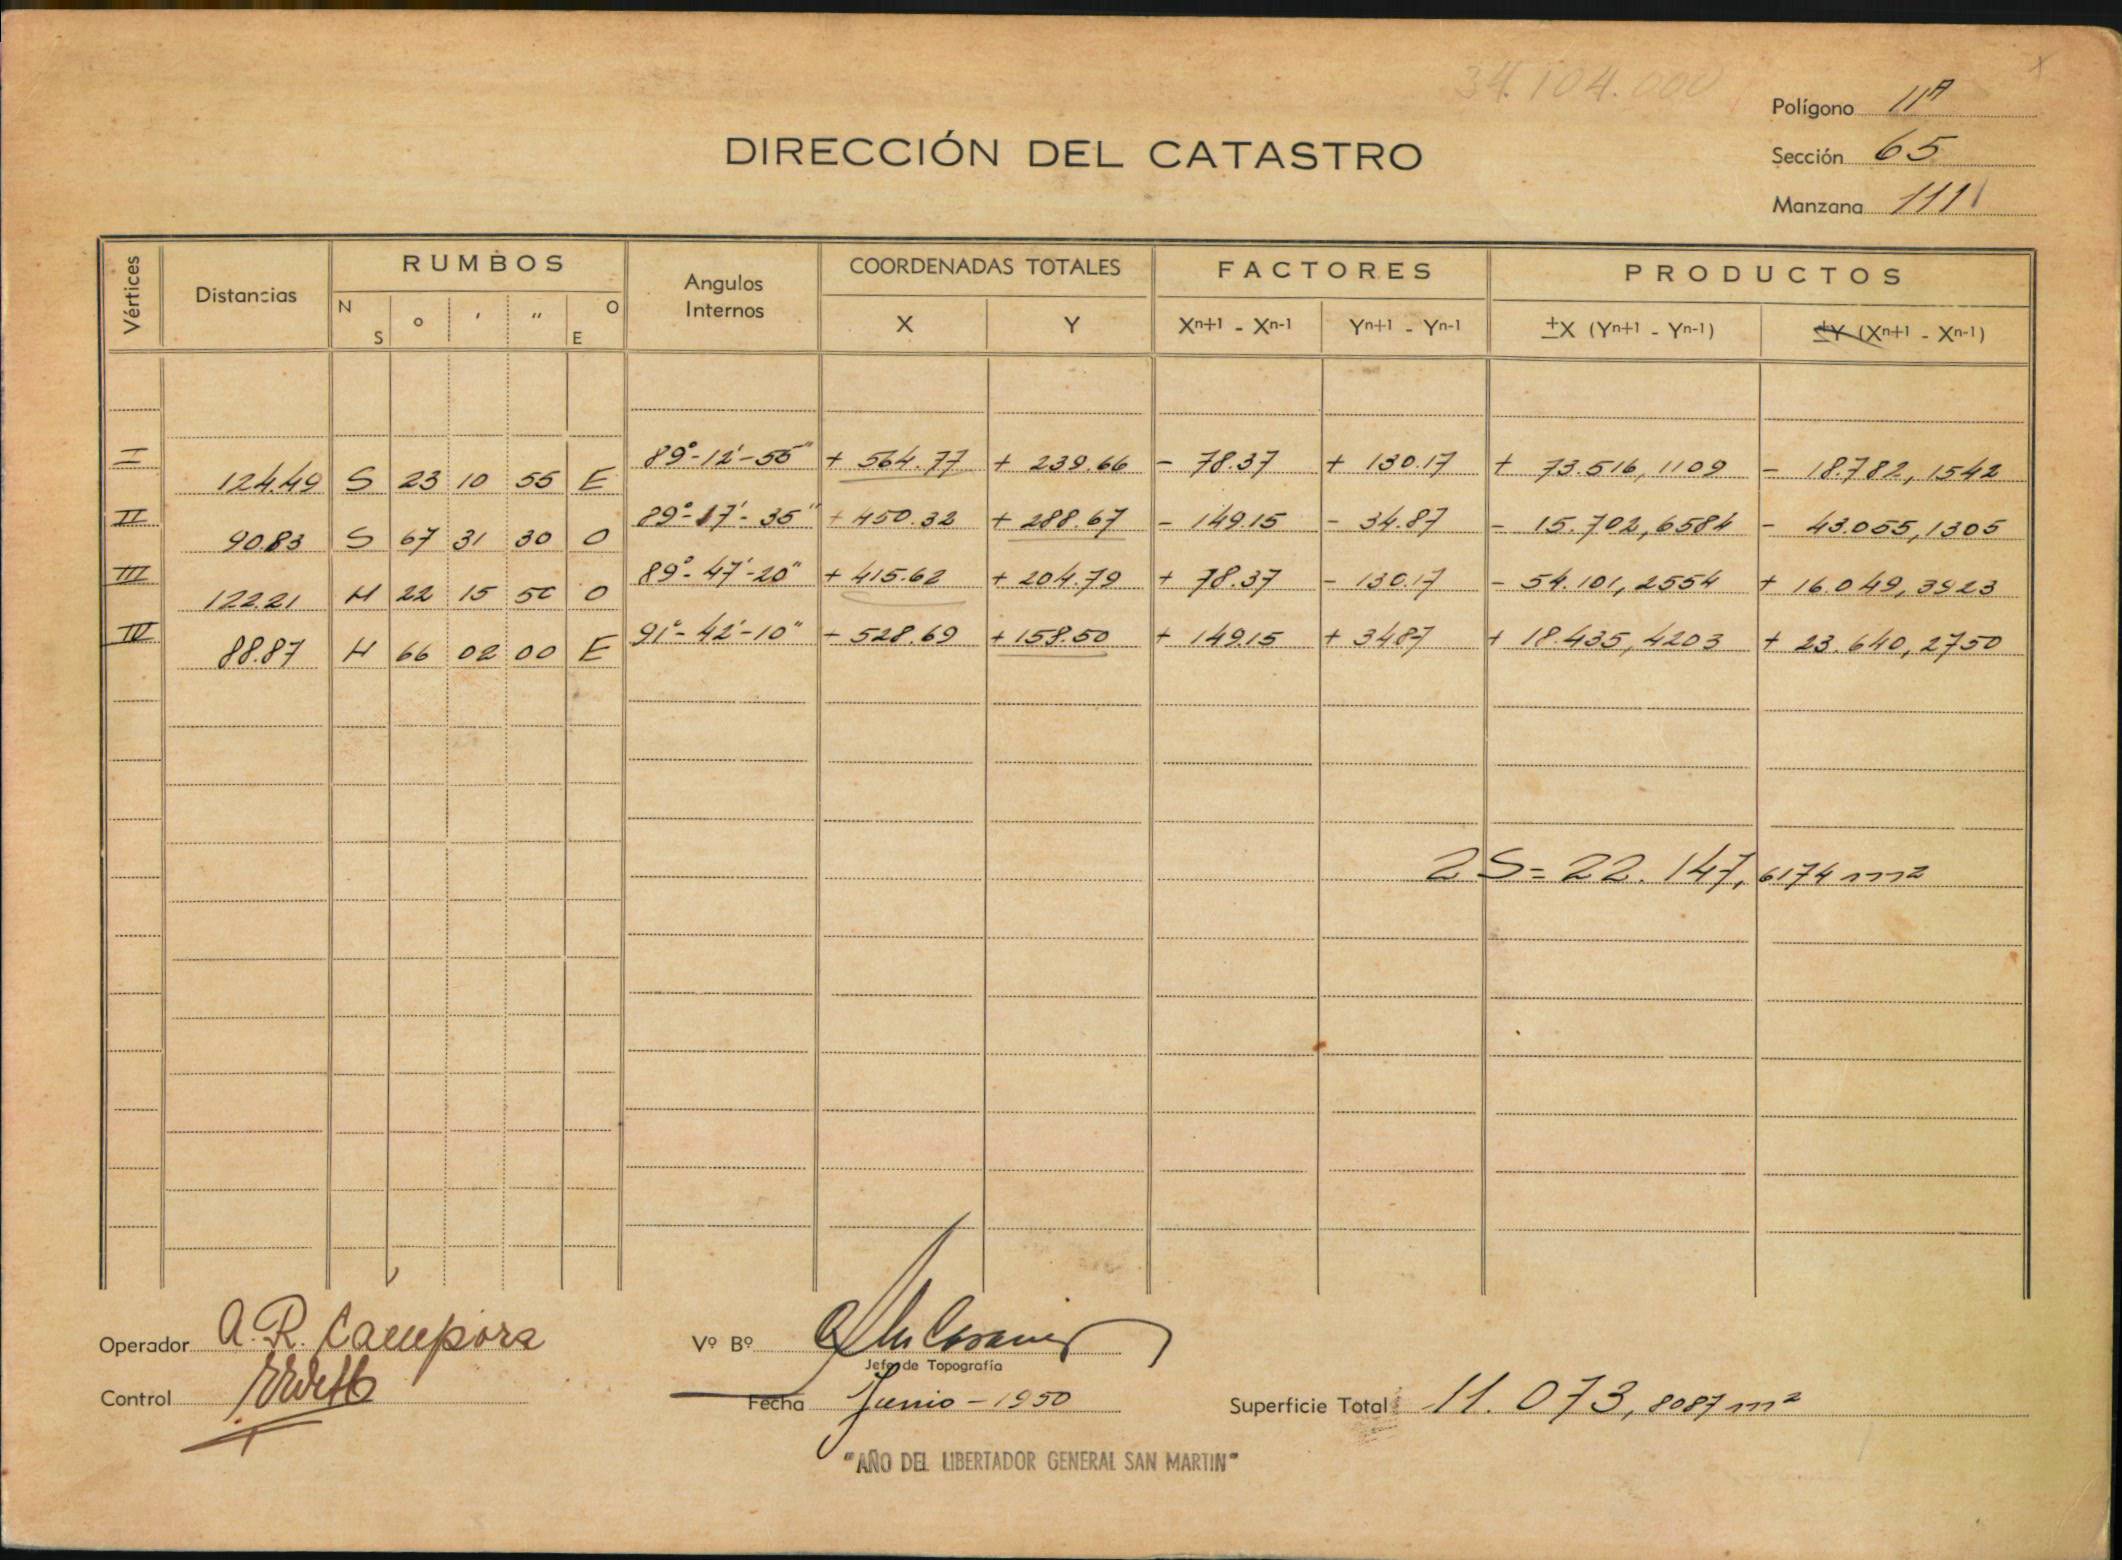 34.104.000
Polígono 11A
DIRECCIÓN DEL CATASTRO
Sección 65
Manzana 111
Vértices Distancias RUMBOS Angulos Internos COORDENADAS TOTALES FACTORES PRODUCTOS
N S o ' " O E X Y Xn+1 - Xn-1 Yn+1 - Yn-1 ±X (Yn+1 - Yn-1) ±Y (Xn+1 - Xn-1)
I 89°-12'-55" + 564.77 + 239.66 - 78.37 + 130.17 + 73.516,1109 - 18.782,1542
124.49 S 23 10 55 E
II 89°-17'-35" + 450.32 + 288.67 - 149.15 - 34.87 - 15.702,6584 - 43.055,1305
90.83 S 67 31 30 O
III 89°-47'-20" + 415.62 + 204.79 + 78.37 - 130.17 - 54.101,2554 + 16.049,3923
122.21 N 22 15 50 O
IV 91°-42'-10" + 528.69 + 158.50 + 149.15 + 34.87 + 18.435,4203 + 23.640,2750
88.87 N 66 02 00 E
2S = 22.147,6174 m2
Operador A. R. Campora
Vº Bº
Jefe de Topografía
Control
Fecha Junio - 1950
Superficie Total 11.073,8087 m2
"AÑO DEL LIBERTADOR GENERAL SAN MARTIN"